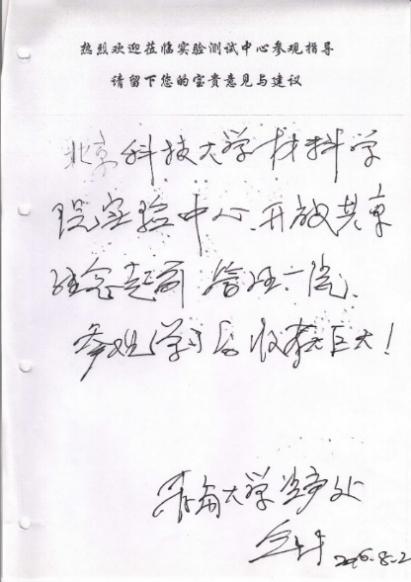 热烈欢迎莅临实验测试中心参观指导
请留下您的宝贵意见与建议
北京科技大学材料学
院实验中心、开放共享
理念超前 管理一流、
参观学习后收获巨大！
青海大学
2016.8.2